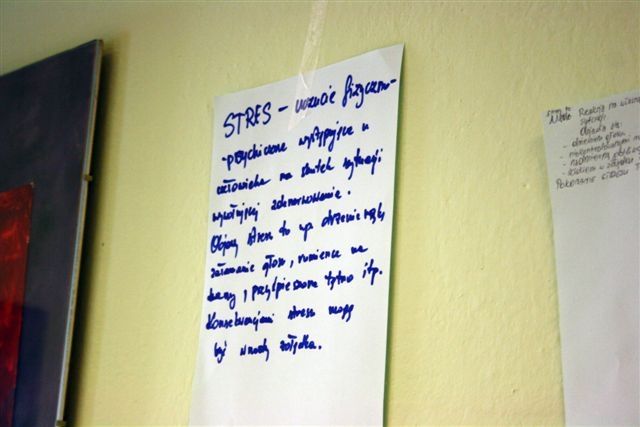 STRES – uczucie fizyczno-
-psychiczne występujące u
człowieka na skutek sytuacji
wywołującej zdenerwowanie.
Objawy stresu to np drżenie ręki,
załamanie głosu, rumieńce na
twarzy, przyśpieszone tętno itp.
Konsekwencjami stresu mogą
być wrzody żołądka.
Reakcja na
sytuacji
Objawia się:
- drżeniem głosu